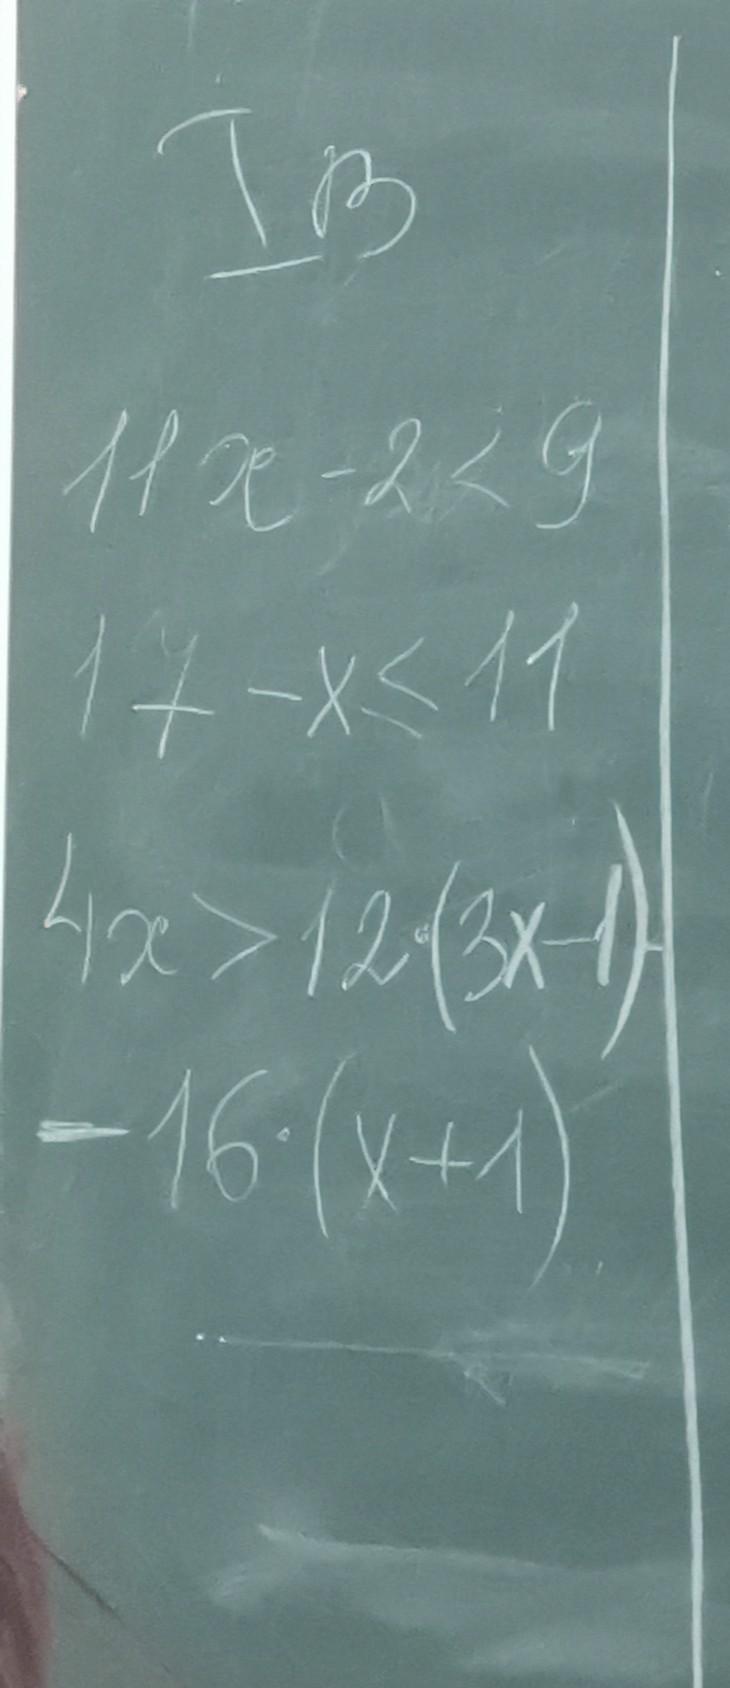 I в
11x - 2 < 9
17 - x ≤ 11
4x > 12·(3x-1)-
-16·(x+1)